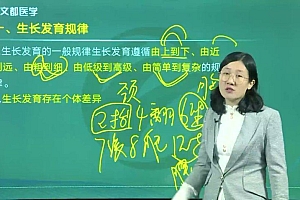 文都医学
一、生长发育规律
生长发育的一般规律生长发育遵循由上到下、由近
到远、由粗到细、由低级到高级、由简单到复杂的规
.生长发育存在个体差异
颈
2抬4翻6坐
7滚8爬12走